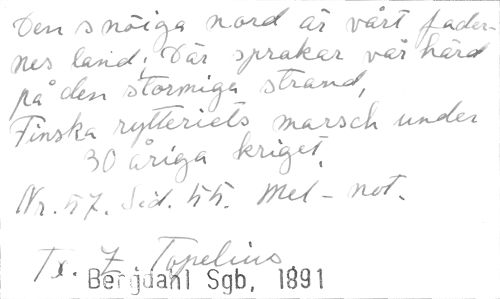 Den snöiga nord är vårt fader-
nes land; Där sprakar vår härd
på den stormiga strand,
Finska rytteriets marsch under
30 åriga kriget.
Nr. 57. Sid. 55. Mel - not.
Tx. Z Topelius.
Bergdahl Sgb, 1891